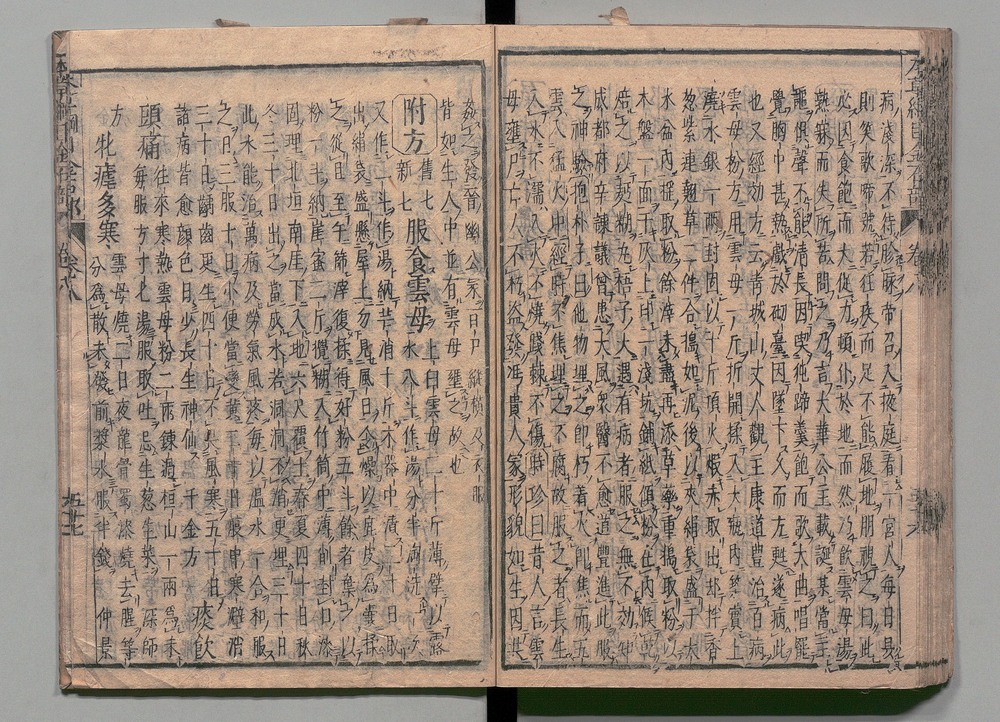 病淺深不待胗脉帝召入掖庭看一宮人每日昃
則笑歌啼號若狂疾而足不能履地朋視之曰此
必因食飽而大促力頓仆於地而然乃飲雲母湯
熟寐而失所苦問之乃言大華公主載誕某當主
謳惧聲不能清長因喫㹠蹄羹飽而歌大曲唱罷
覺胸中甚熱戲於砌臺因墜下久而方甦遂病此
也又經効方云青城山丈人觀主康道豊治百病
雲母粉方用雲母一斤折開揉入大瓶内築實上
澆水銀一兩封固以十斤頂火煆赤取出却拌香
葱紫連翹草二件合搗如泥後以夾絹袋盛于大
水盆内揺取粉餘滓未盡再添草藥重搗取粉以
木盤一面于灰上印一淺坑鋪紙傾粉在内候乾
焙之以麫糊丸梧子大遇有病者服之無不効知
成都府辛諫議曾患大風衆醫不愈道豊進此服
之神驗抱朴子曰他物埋之即朽着火即焦而五
雲入火中經時不焦埋之不腐故服之者長生
入水不濡入火不燒踐棘不傷時珍曰昔人言雲
母壅尸亡人不朽盜發馮貴人冢形貌如生因共
姦之發晉幽公冢百尸縱横及衣服
皆如生人中並有雲母壅之故也
附方 舊七 新七 服食雲母 上白雲母二十斤薄擘以露
水八斗作湯分半淘洗二次
又作二斗作湯納芒消十斤木器中漬二十日取
出絹袋盛懸屋上勿見風日令燥以鹿皮為囊揉
之從旦至午篩滓復揉得好粉五斗餘者棄之以
粉一斗納崖蜜二斤攪糊入竹筒中薄削封口漆
固埋北垣南崖下入地六尺覆土春夏四十日秋
冬三十日出之當成水若洞洞不消更埋三十日
此水能治萬病及勞氣風疼每以温水一合和服
之日三服十日小便當變黄二十日腹中寒澼消
三十日齲齒更生四十日不畏風寒五十日
諸病皆愈顔色日少長生神仙千金方 痰飲
頭痛 毎服方寸匕湯服取吐忌生葱生菜深師
往來寒熱雲母粉二兩錬過恒山一兩為末
方 牝瘧多寒 雲母燒二日夜龍骨蜀漆燒去腥等
分為散未發前漿水服半錢 仲景